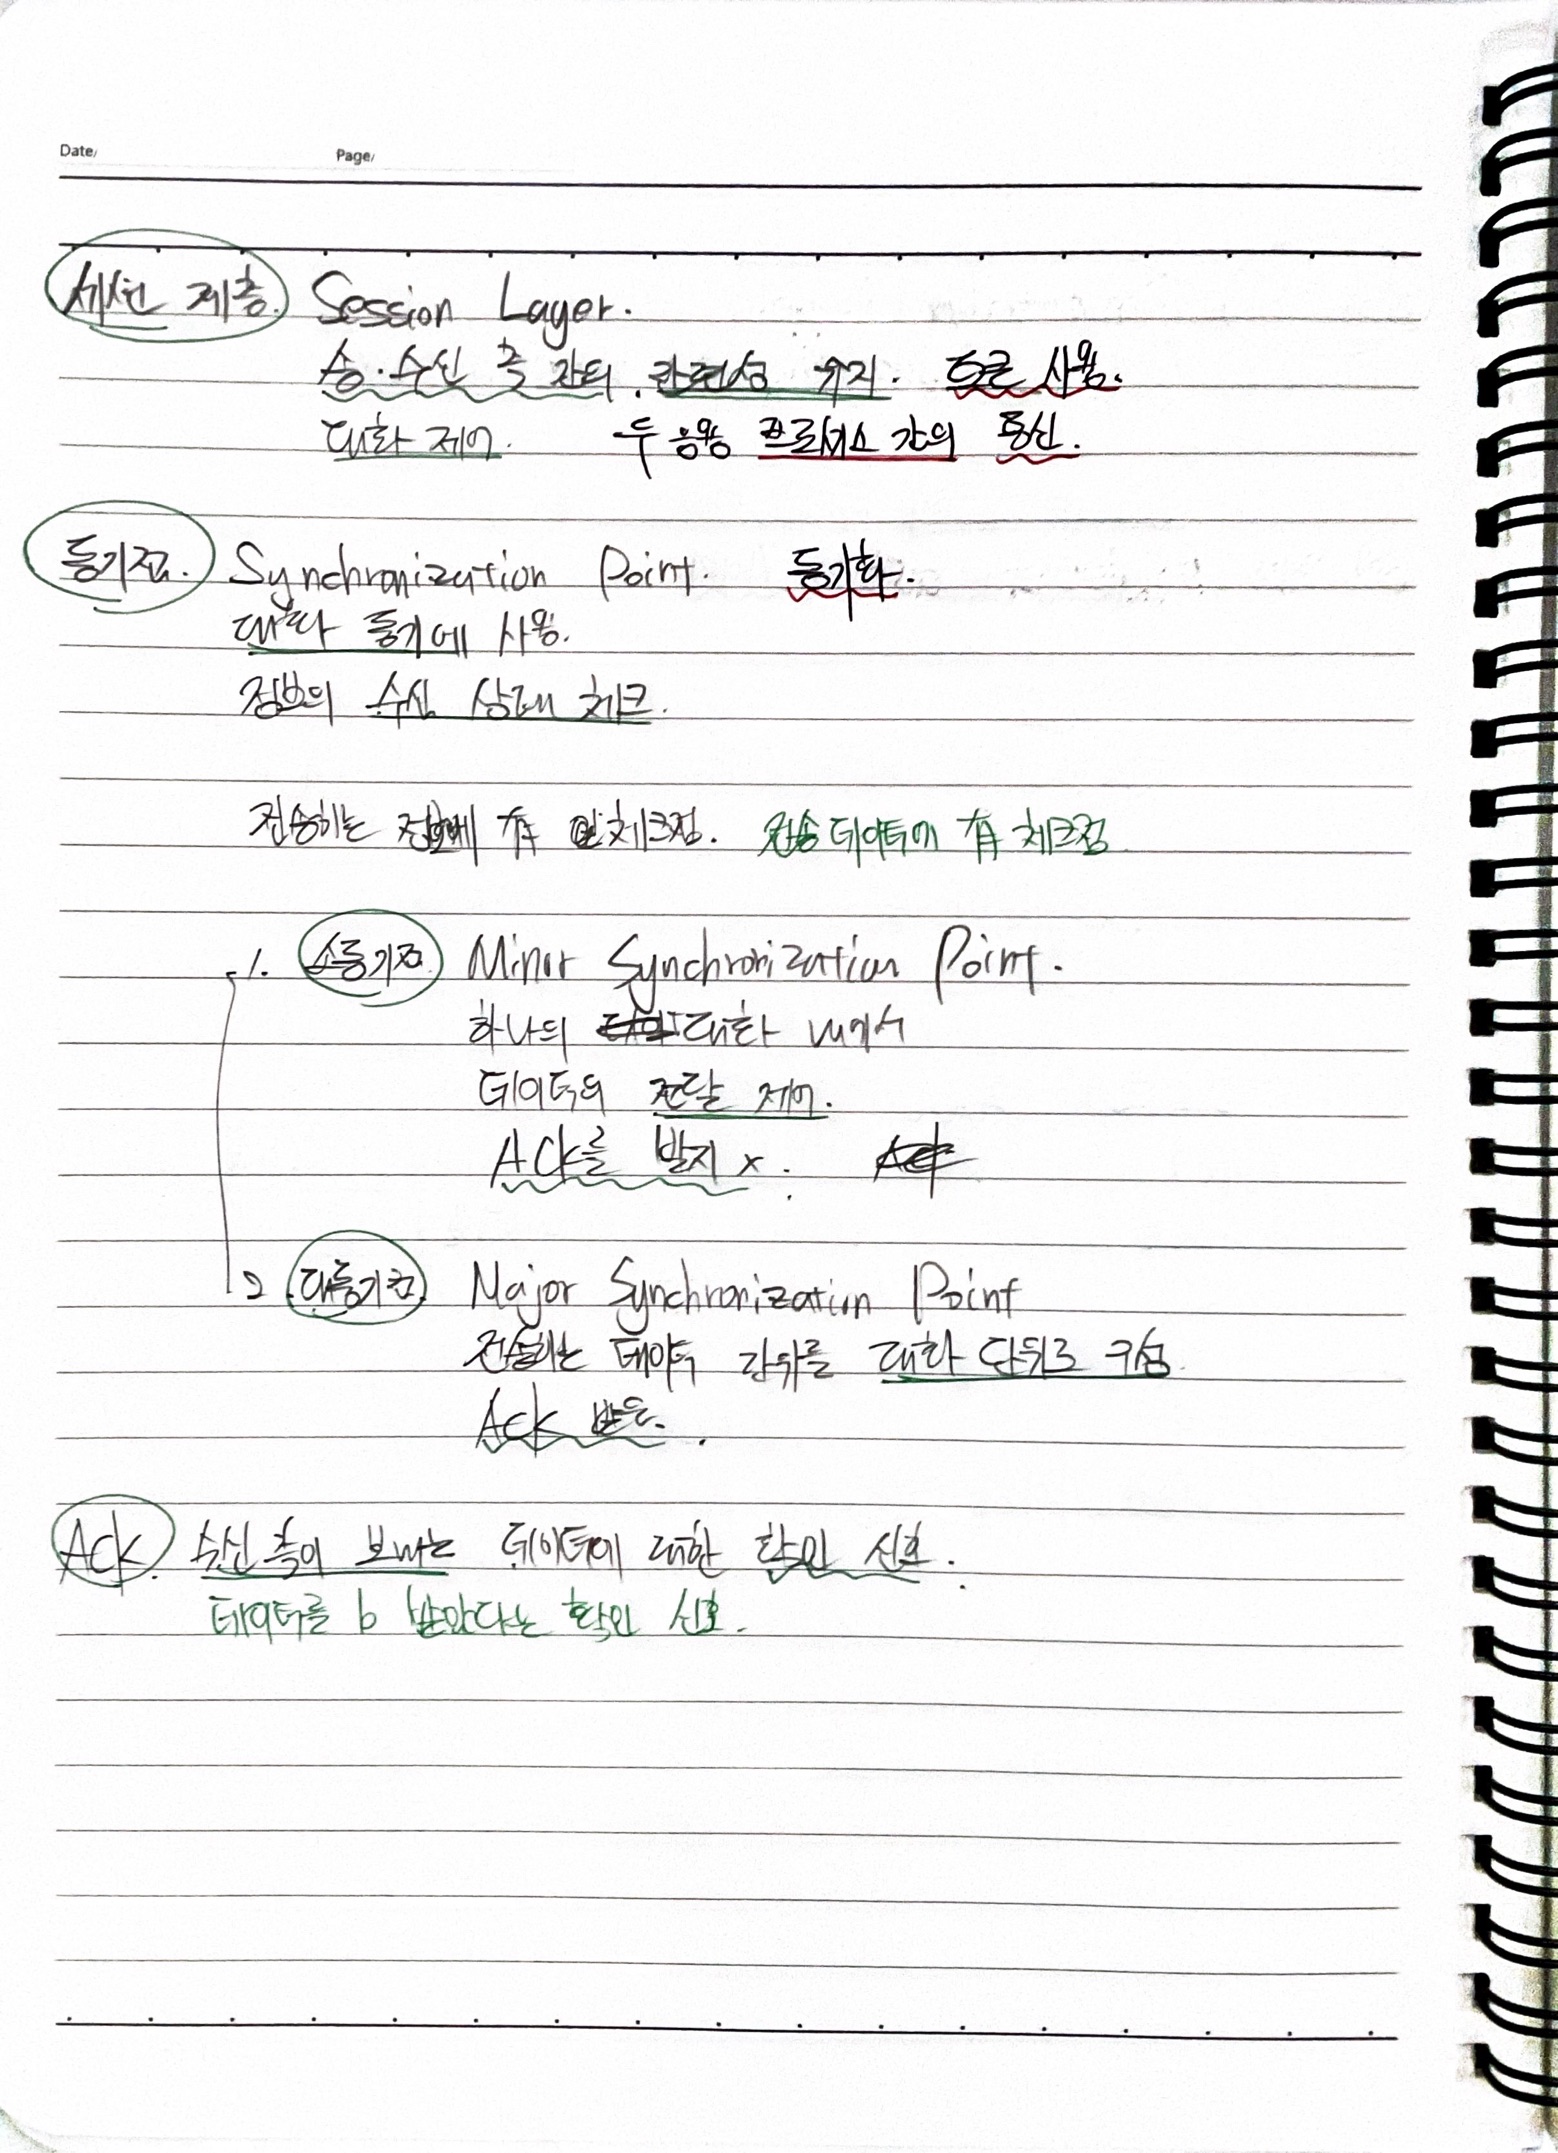 Date/ Page/
세션 계층. Session Layer.
송·수신 측 간의 관련성 유지. 토큰 사용.
대화 제어. 두 응용 프로세스 간의 통신.
동기점. Synchronization Point. 동기화.
대화 동기에 사용.
정보의 수신 상태 체크.
전송하는 정보에 有 체크점. 전송 데이터에 有 체크점
1. 소동기점 Minor Synchronization Point.
하나의 대화 내에서
데이터의 전달 제어.
ACK를 받지 x.
2. 대동기점. Major Synchronization Point
전송하는 데이터 단위를 대화 단위로 구성.
Ack 받음.
ACK. 수신 측이 보내는 데이터에 대한 확인 신호.
데이터를 b 받았다는 확인 신호.